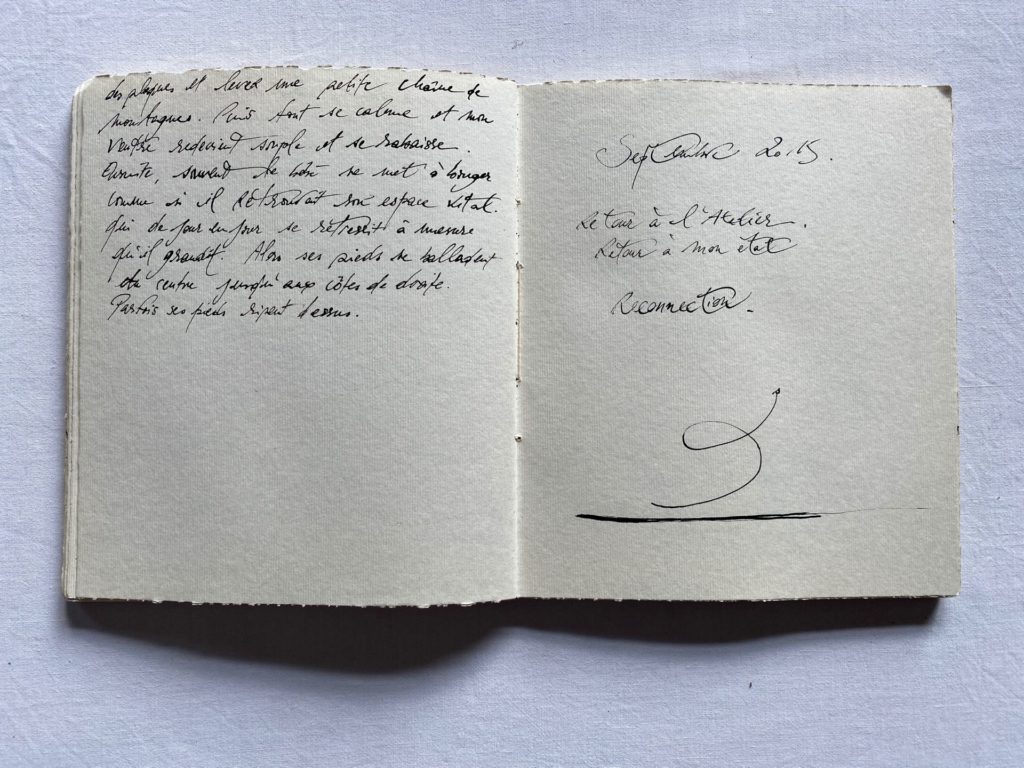 des plaques et lever une petite chaîne de
montagnes. Puis tout se calme et mon
ventre redevient souple et se rabaisse.
Ensuite, souvent le bébé se met à bouger
comme si il retrouvait son espace vital.
qui de jour en jour se rétrecit à mesure
qu'il grandit. Alors ses pieds se balladent
du centre jusqu'aux côtes de droite.
Parfois ses pieds ripent dessus.
Septembre 2015.
Retour à l'Atelier.
Retour à mon état
Reconnection.